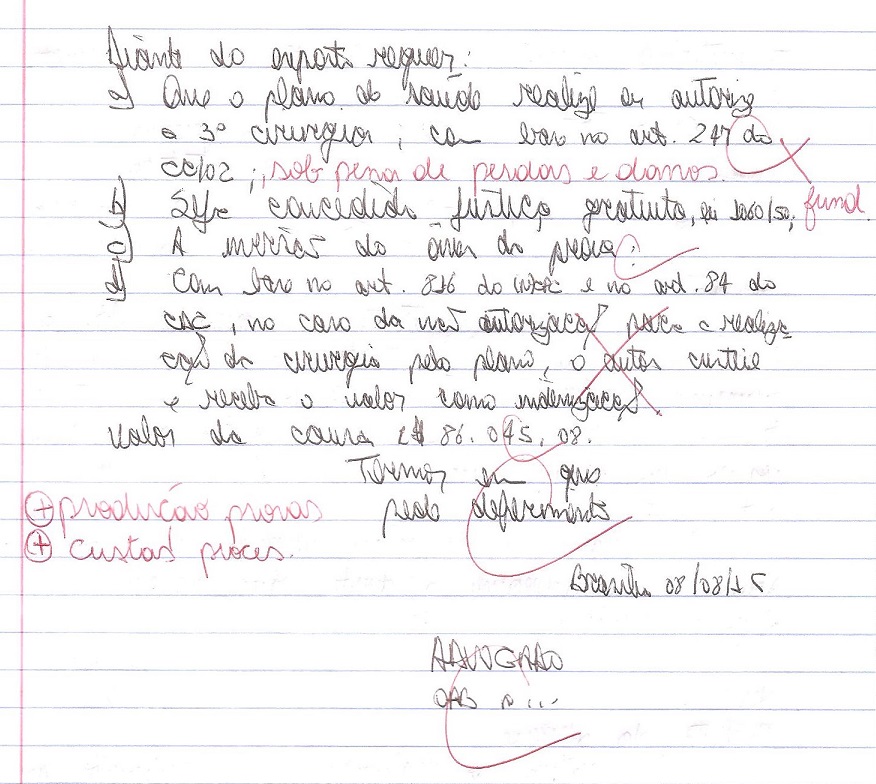 Diante do exposto requer:
a) Que o plano de saúde realize ou autorize
a 3º cirurgia, com base no art. 247 do
CC/02 ;, sob pena de perdas e danos.
b) Seja concedida justiça gratuita, lei 1060/50; fund.
c) A inversão do ônus da prova;
d) Com base no art. 816 do e no art. 84 do
CDC, no caso da não autorização para a realiza
ção da cirurgia pelo plano, o autor custeie
e receba o valor como indenização.
Valor da causa R$ 86.045,08.
Termos em que
pede deferimento
+ produção provas
+ custas proces.
Brasília 08/08/15
ADVOGADO
OAB n ...